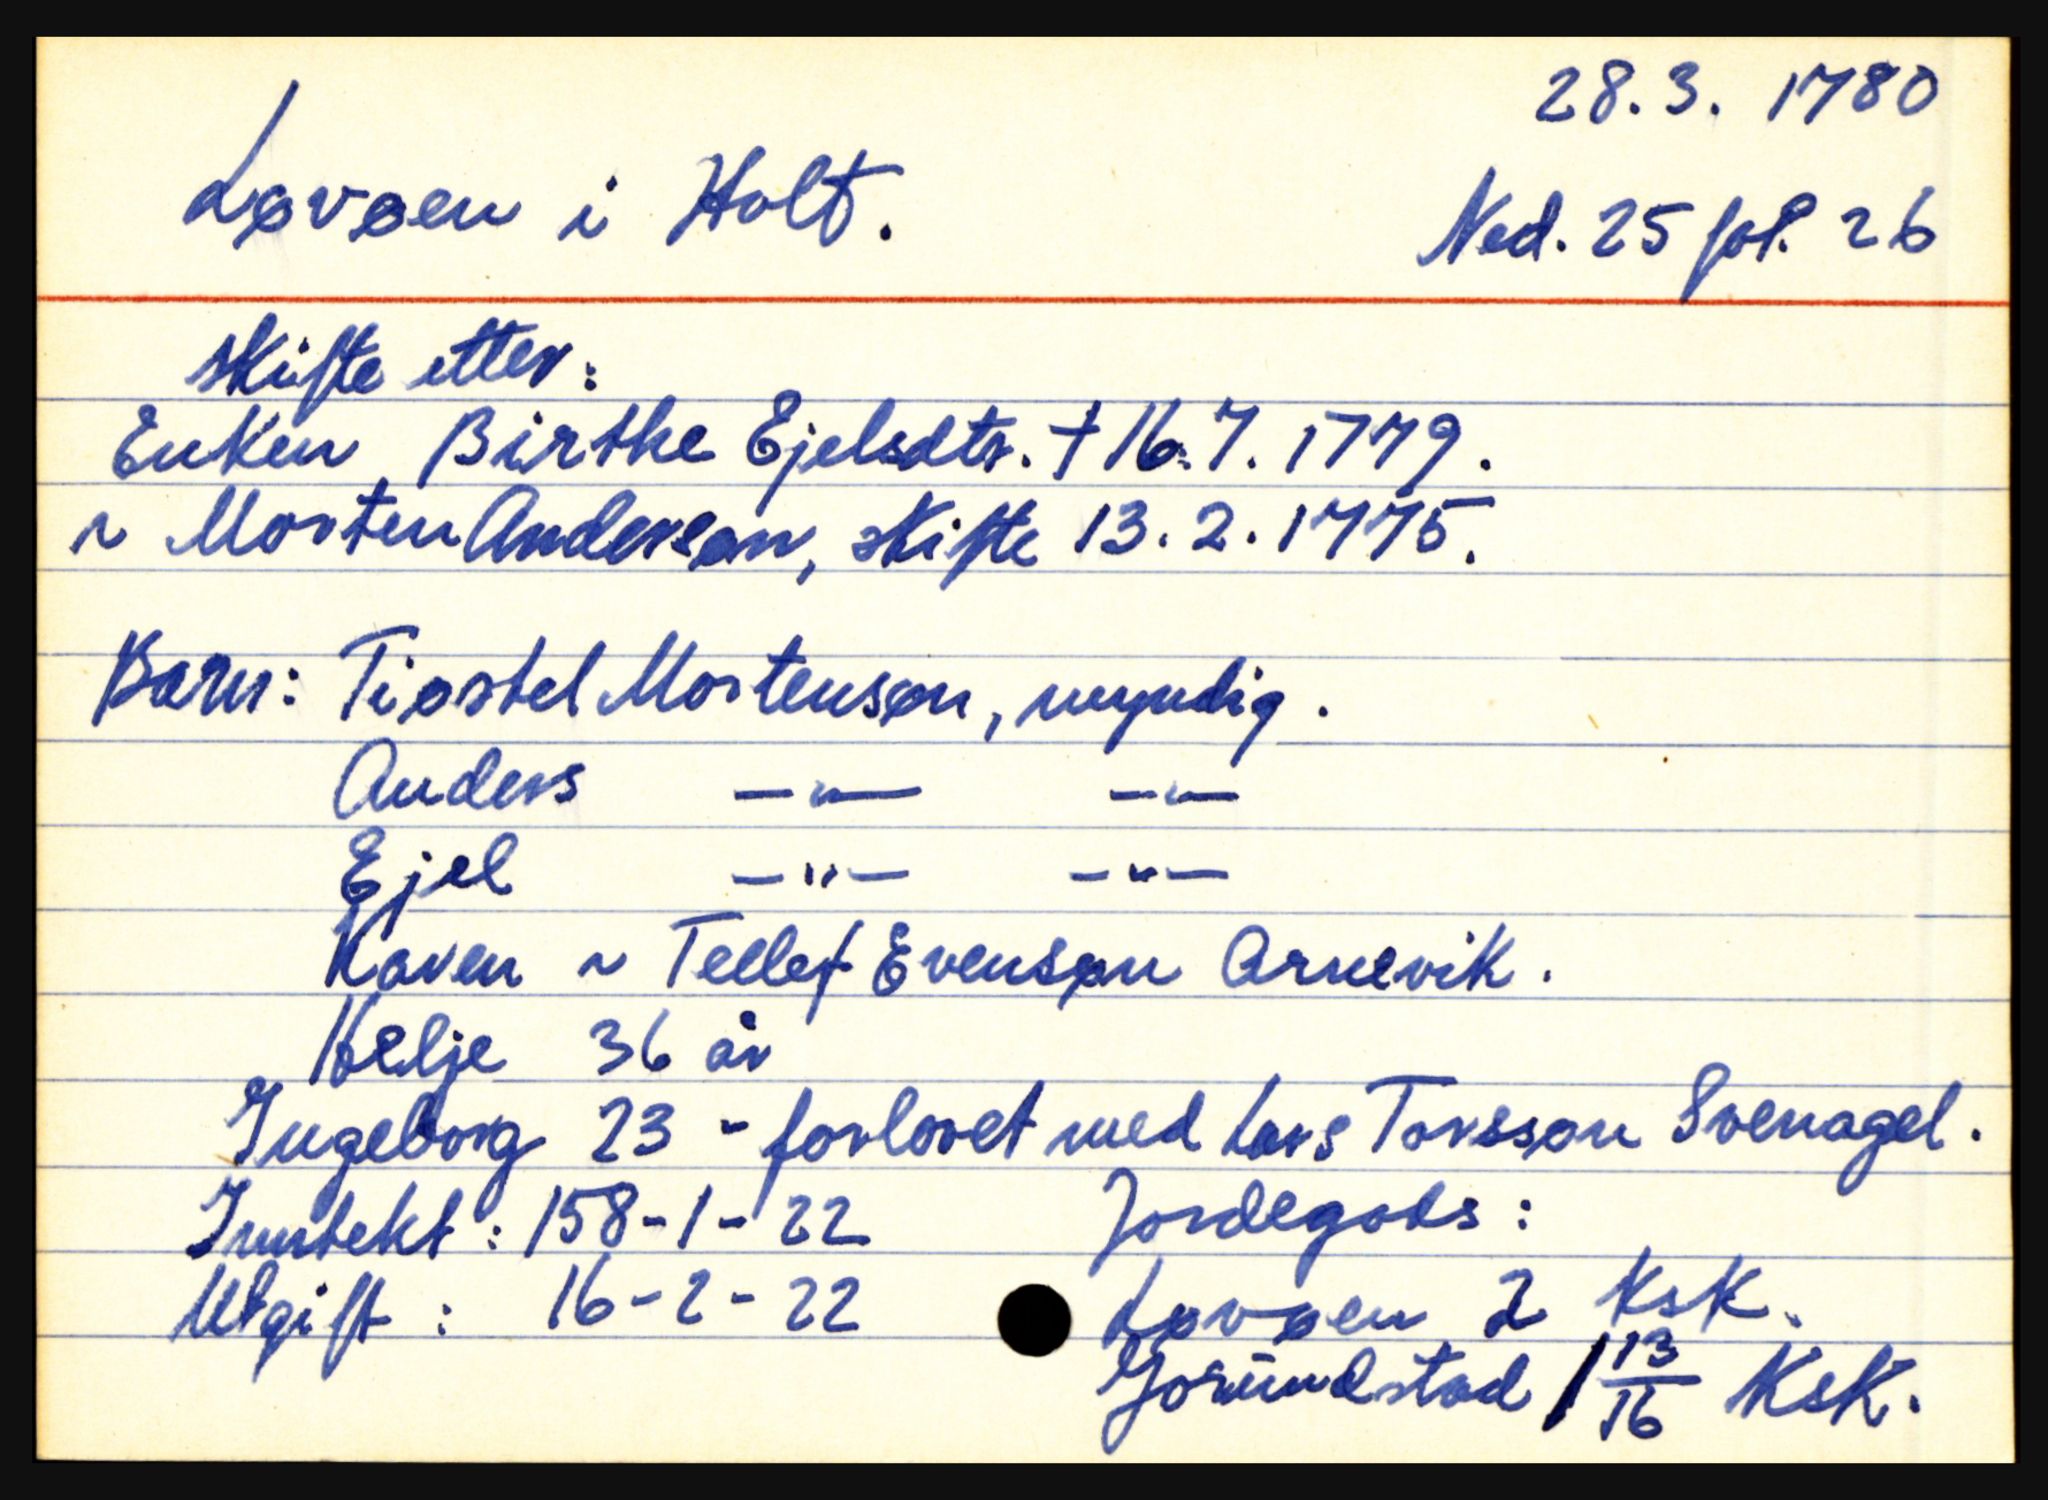 28.3. 1780
Løvøen i Holt.
Ned. 25 fol. 26
skifte etter:
Enken Birthe Ejelsdtr. † 16.7. 1779.
~ Morten Andersøn, skifte 13.2.1775.
Barn: Tiøstel Mortensøn, myndig.
Anders —"— —"—
Ejel —"— —"—
Karen ~ Tellef Evensøn Arnevik.
Helje 36 år
Ingeborg 23 - forlovet med Lars Tarsson Svenagel.
Inntekt: 158-1-22
Jordegods:
Utgift: 16-2-22
Løvøen 2 Ksk.
Gorŭndstad 1 13/16 Ksk.